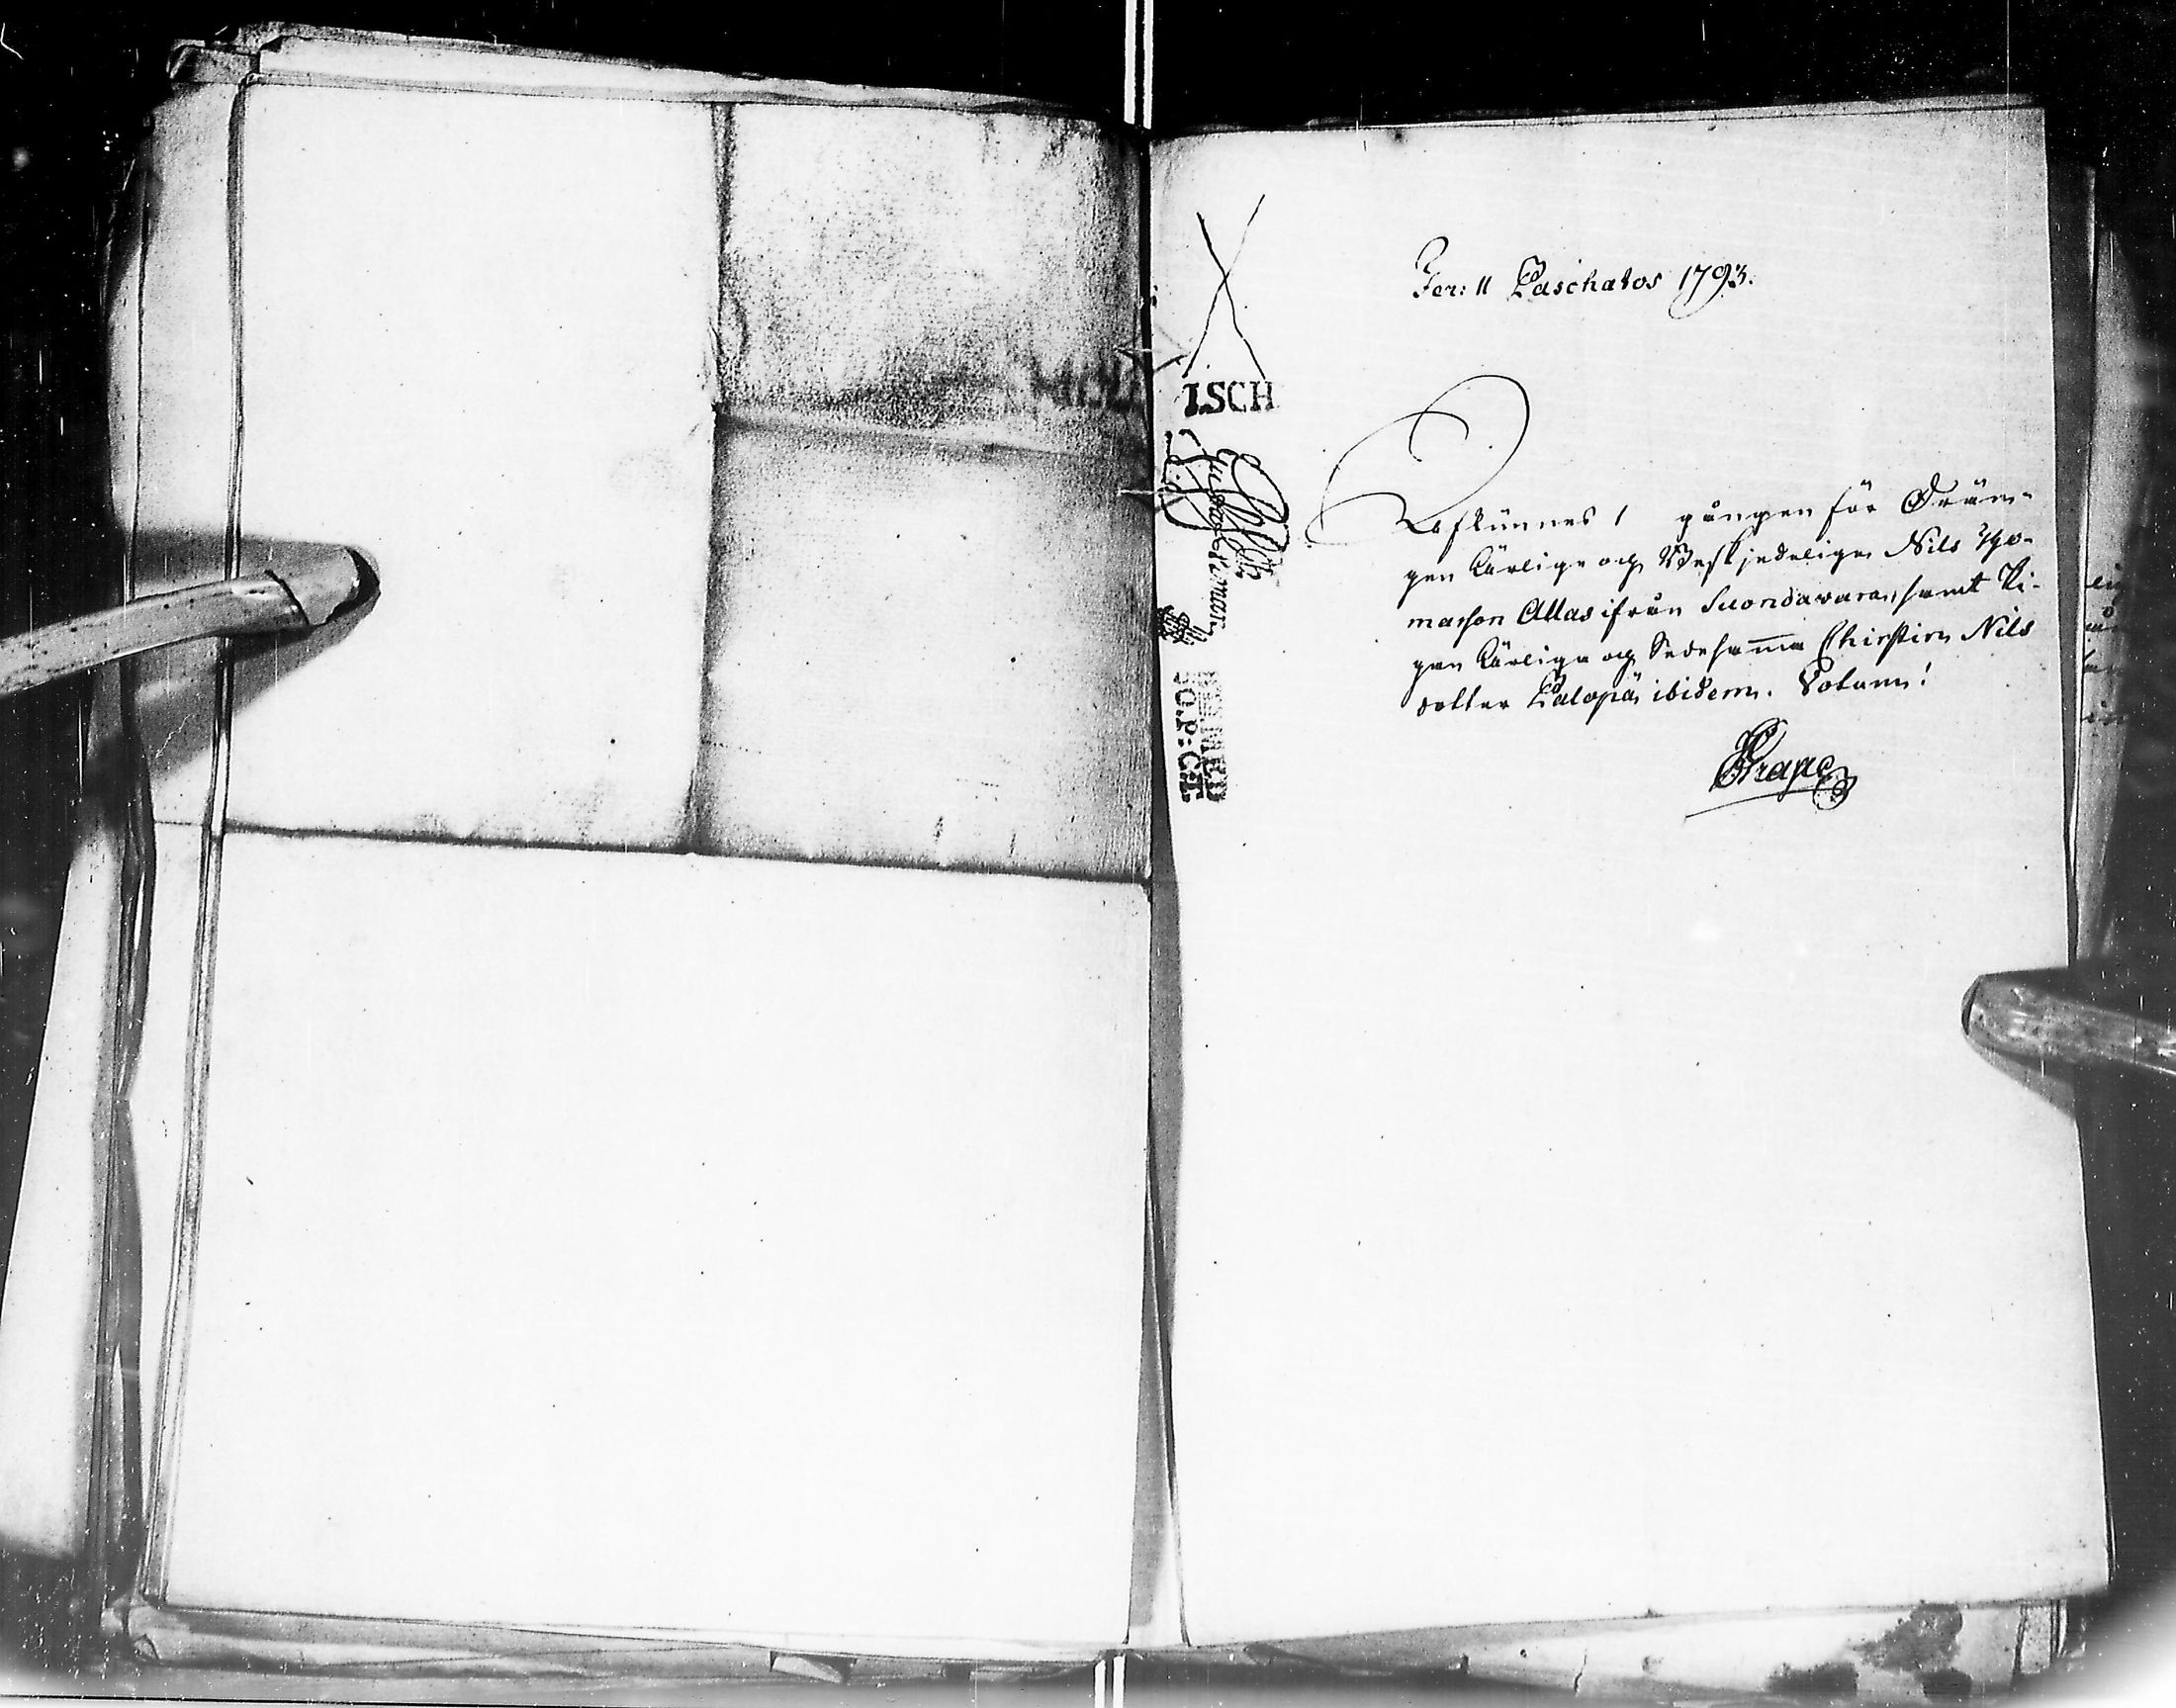 Fer: II Paschatos 1793.
I.SCH
Afkunnes 1 gången för Dräng
gen Ärlige och Beskjedelige Nils Tho-
masson Allas ifrån Suondavara, samt Pi-
gan Ärliga och Sedesamma Chirstin Nils
dotter Palopää ibidem. Votum!
Grape
SO.P:CT.